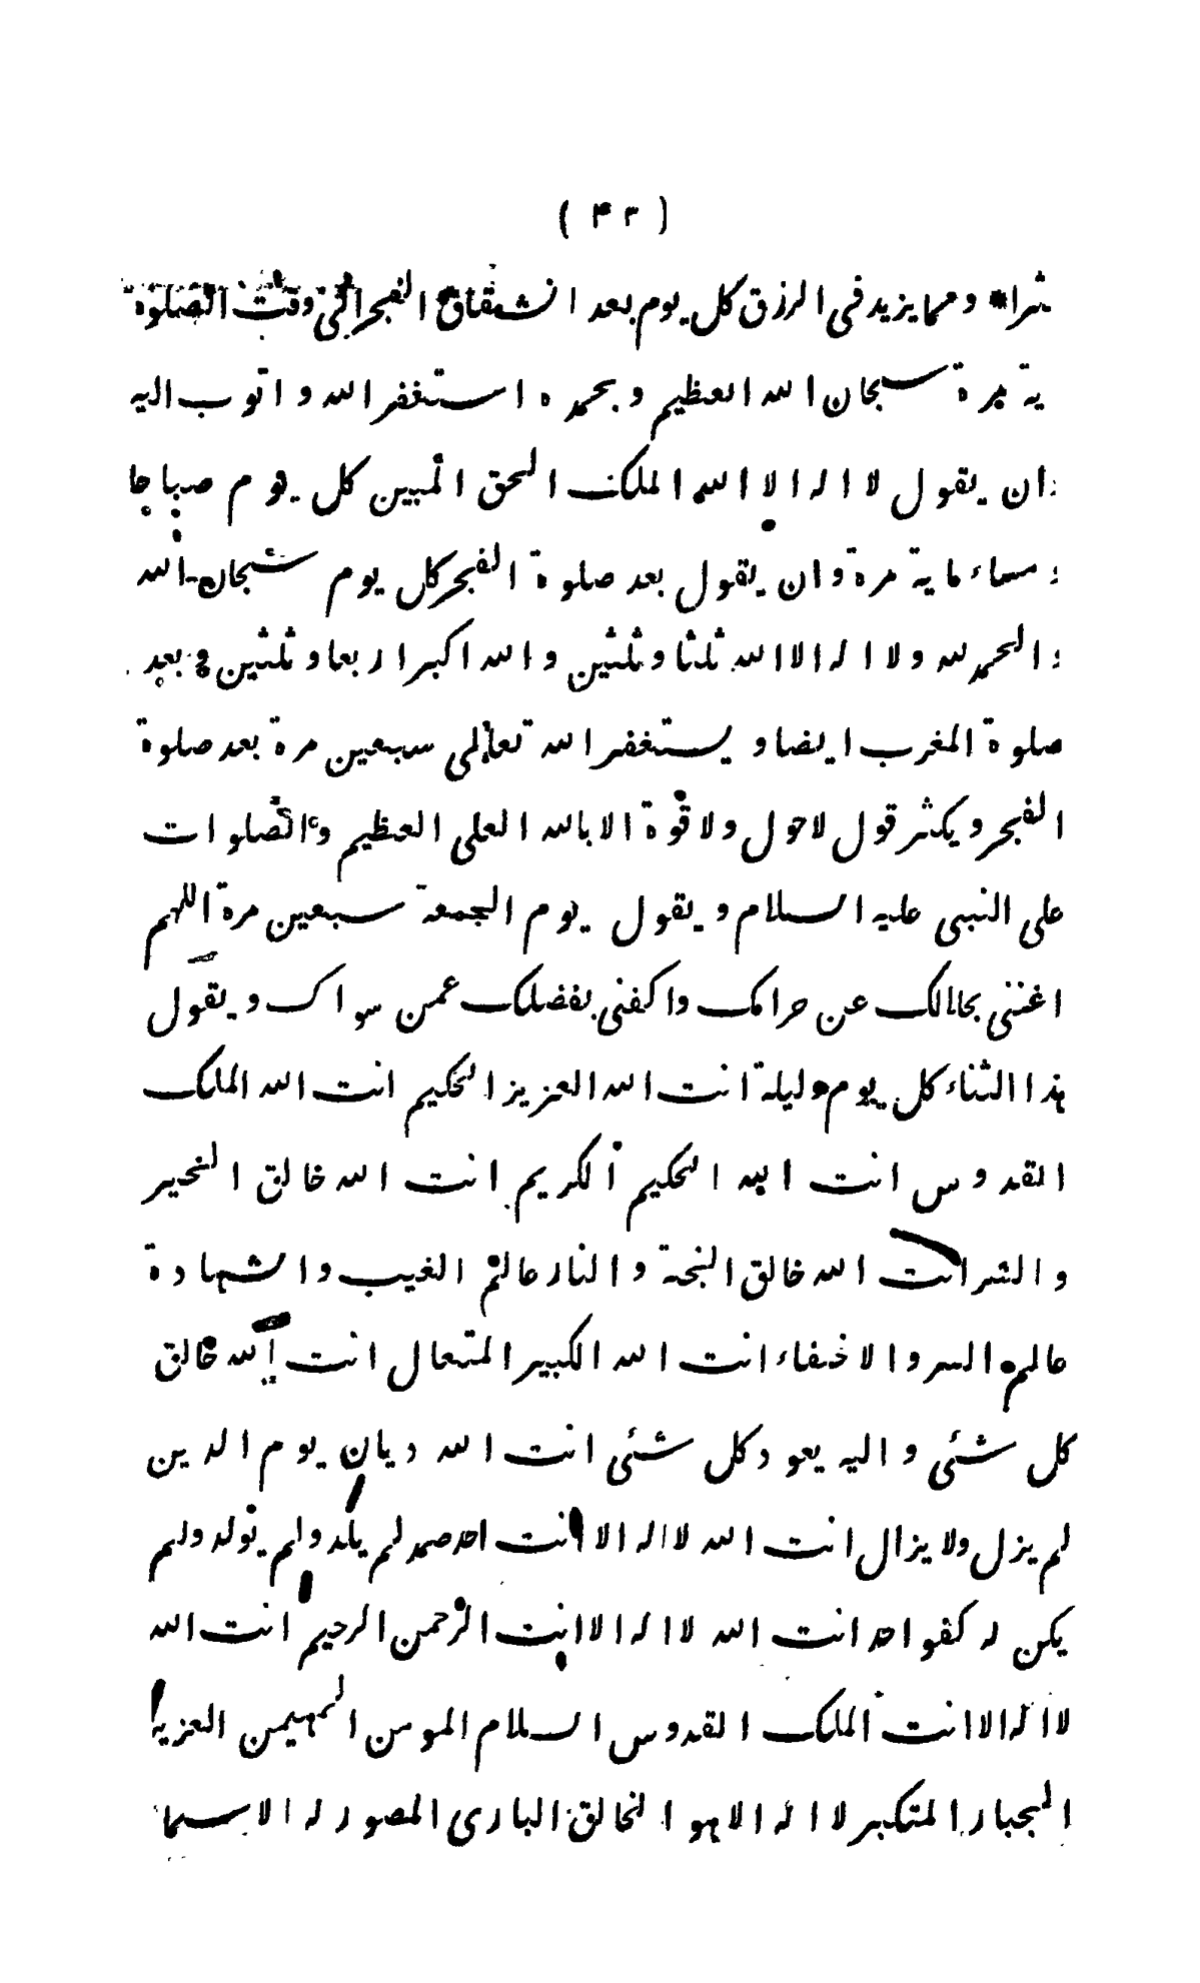 ( ۴۲ )
شرا* ومما يزيد فى الرزق كل يوم بعد انشقاق الفجر الى وقت الصلوة
ية مرة سبحان الله العظيم و بحمده استغفر الله واتوب اليه
وان يقول لا اله الا الله الملك الحق المبين كل يوم صباحا
ومساء ماية مرة وان يقول بعد صلوة الفجر كل يوم سبحان الله
والحمد لله ولا اله الا الله ثلثا وثلثين والله اكبر اربعا وثلثين وبعد
صلوة المغرب ايضا ويستغفر الله تعالى سبعين مرة بعد صلوة
الفجر ويكثر قول لاحول ولا قوة الا بالله العلى العظيم والصلوات
على النبى عليه السلام ويقول يوم الجمعة سبعين مرة اللهم
اغننى بحلالك عن حرامك واكفنى بفضلك عمن سواك ويقول
هذا الثناء كل يوم وليلة انت الله العزيز الحكيم انت الله الملك
القدوس انت الله الحكيم الكريم انت الله خالق الخير
والشر انت الله خالق الجنة والنار عالم الغيب والشهادة
عالم السر والاخفاء انت الله الكبير المتعال انت الله خالق
كل شئى واليه يعود كل شئى انت الله ديان يوم الدين
لم يزل ولا يزال انت الله لا اله الا انت احد صمد لم يلد ولم يولد ولم
يكن له كفوا احد انت الله لا اله الا انت الرحمن الرحيم انت الله
لا اله الا انت الملك القدوس السلام المومن المهيمن العزيز
الجبار المتكبر لا اله الا هو الخالق البارى المصور له الاسما